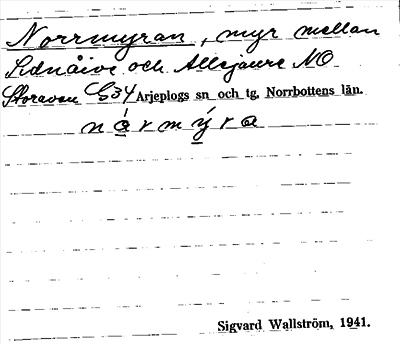 Norrmyran, myr mellan
Lidnåive och Allejaure NO
Storavan G34 Arjeplogs sn och tg, Norrbottens län.
nårmýra
Sigvard Wallström, 1941.